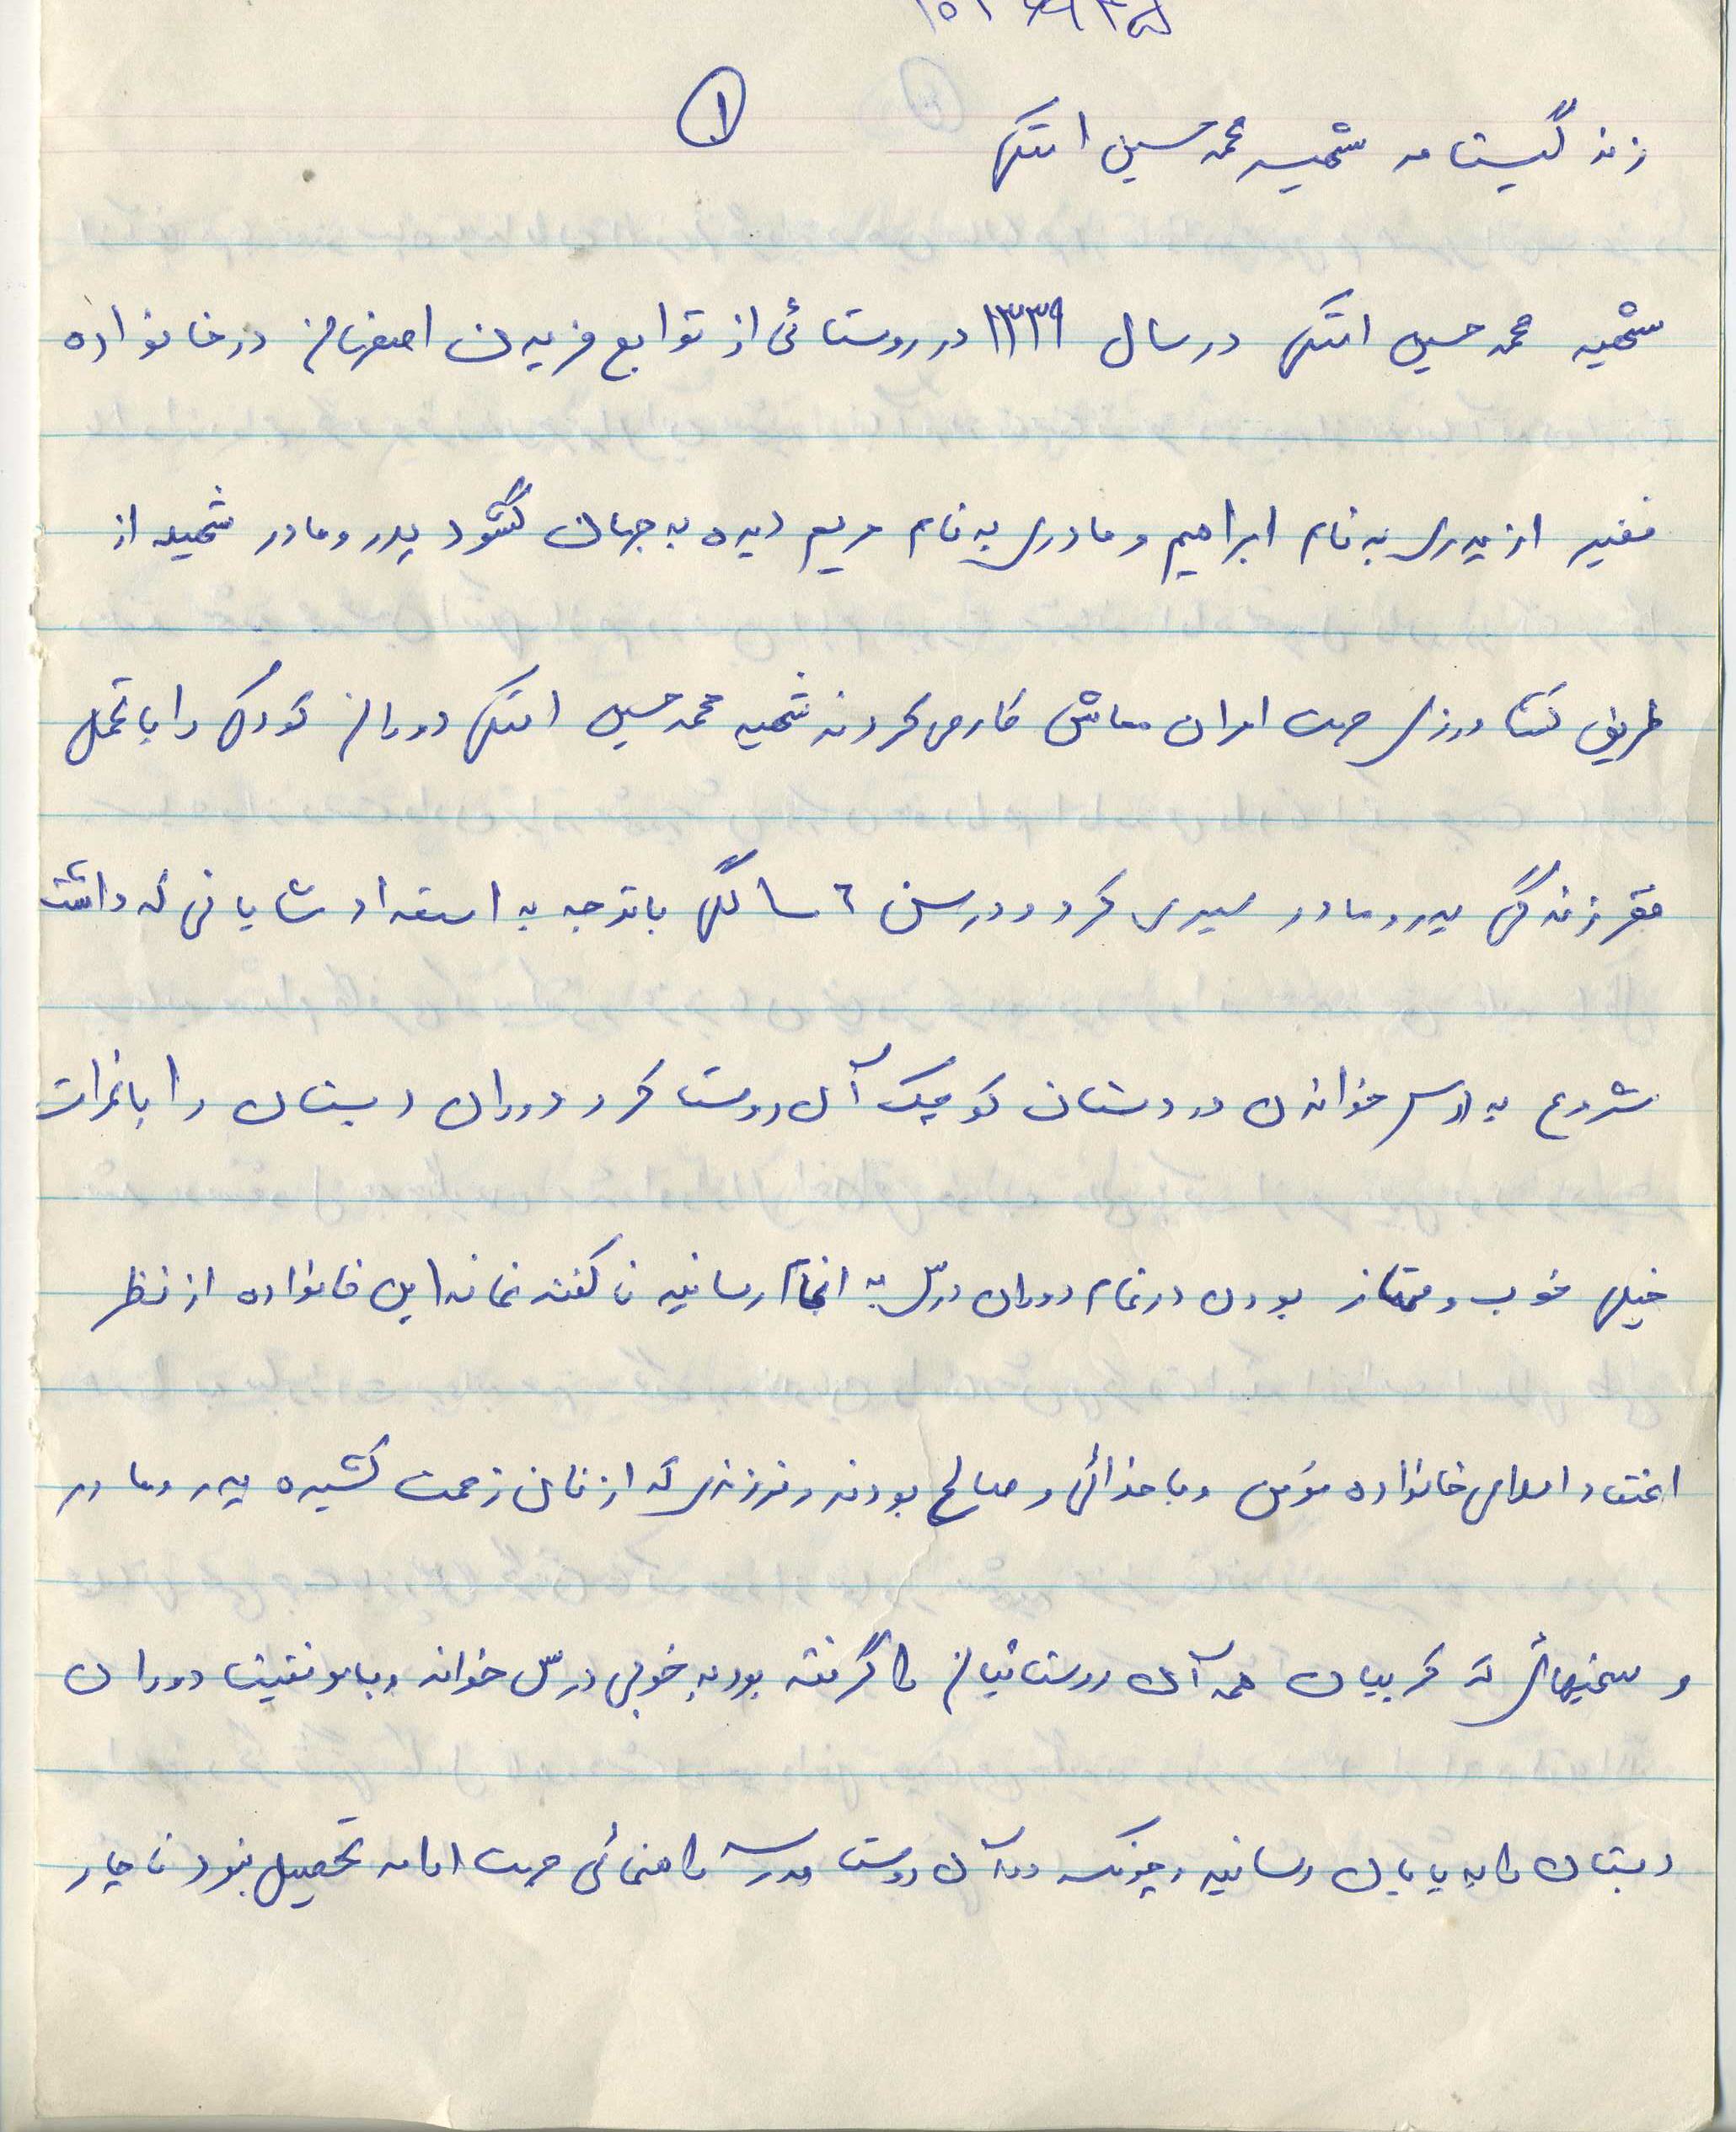 ①
زندگینامه شهید محمد حسین
شهید محمد حسین در سال ۱۳۳۹ در روستائی از توابع فریدن اصفهان در خانواده
فقیر از پدری به نام ابراهیم و مادری به نام مریم دیده به جهان گشود پدر و مادر شهید از
طریق کشاورزی جهت امرار معاش کار می کردند شهید محمد حسین دوران کودکی را با تحمل
فقر زندگی پدر و مادر سپری کرد و در سن ٦ سالگی با توجه به استعداد شایانی که داشت
شروع به درس خواندن در دبستان کوچک آن روستا کرد دوران دبستان را با نمرات
خیلی خوب و ممتاز بودن در تمام دوران درس به انجام رسانید ناگفته نماند این خانواده از نظر
اعتقاد اسلامی خانواده مؤمن و با خدائی و صالح بودند و فرزندی که از نان زحمت کشیده پدر و مادر
و سختیهائی که گریبان همه آن روستائیان را گرفته بود به خوبی درس خواند و با موفقیت دوران
دبستان را به پایان رسانید و چونکه در آن روستا مدرسه راهنمائی جهت ادامه تحصیل نبود ناچار